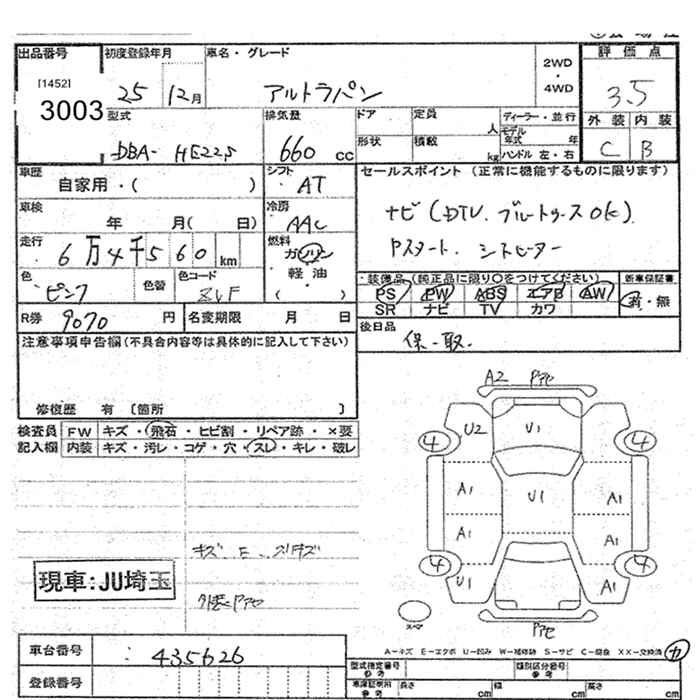 出品番号 初度登録年月 車名・グレード 評価点
[1452]
3003
25 12月 アルトラパン 2WD・4WD 3.5
型式 排気量 ドア 定員 人 ディーラー・並行 外装 内装
DBA-HE22S 660 cc 形状 積数 kg モデル年式 年 ハンドル 左・右 C B
車歴 自家用・( ) シフト AT セールスポイント(正常に機能するものに限ります)
車検 年 月( 日) 冷房 AAC ナビ(DTV. ブルートゥースOK).
走行 6万4千560km 燃料 ガソリン 軽油 ( ) Pスタート. シートヒーター
色 ピンク 色替 色コード ZVF ・装備品(純正品に限り○をつけてください) 新車保証書
PS PW ABS エアB AW 有・無
SR ナビ TV カワ
R券 9070 円 名変期限 月 日 後日品
保.取.
注意事項申告欄(不具合内容等は具体的に記入して下さい)
修復歴 有 [箇所 ]
検査員 FW キズ・飛石・ヒビ割・リペア跡・×要
記入欄 内装 キズ・汚レ・コゲ・穴・スレ・キレ・破レ
A2 Pアセ
4 U2 U1 4
A1 U1 A1
A1 A1
4 U1 A1 4
Pアセ
キズ.E.スリキズ
外装Pアセ
現車:JU埼玉
A-キズ E-エクボ U-凹み W-補修跡 S-サビ C-腐食 XX-交換済
車台番号 435626
登録番号
型式指定番号 参考 類別区分番号 参考
車庫証明用 参考 長さ cm 幅 cm 高さ cm